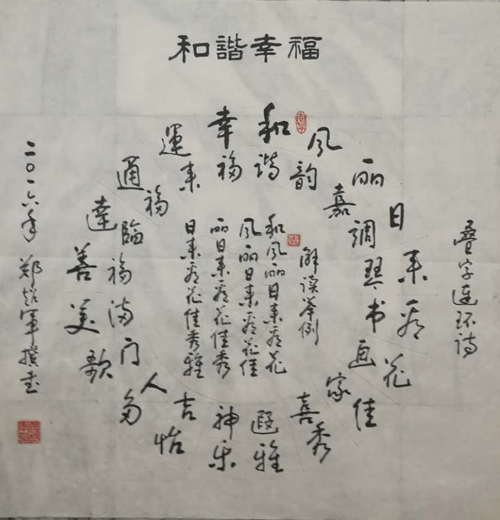 和諧幸福
叠字连环诗
日来看花佳
丽調琴书画家
嘉
风韵
和谐
幸福
運来
福
通臨福满门多
達善美歌
喜秀
遐雅
神乐
吉怡
人
解读举例
和风丽日来看花
风丽日来看花佳
丽日来看花佳秀
日来看花佳秀雅
二〇一六年 郑 军撰书